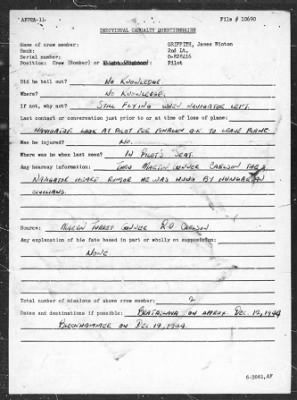 AFPPA-11
File # 10690
INDIVIDUAL CASUALTY QUESTIONNAIRE
Name of crew member: GRIFFITH, James Winton
Rank: 2nd Lt.
Serial number: 0-828416
Position: Crew (Bomber) or Pilot
Did he bail out? NO KNOWLEDGE
Where? NO KNOWLEDGE.
If not, why not? STILL FLYING WHEN NAVIGATOR LEFT.
Last contact or conversation just prior to or at time of loss of plane:
NAVIGATOR LOOK AT PILOT FOR O.K TO LEAVE PLANE
Was he injured? NO.
Where was he when last seen? IN PILOT'S SEAT.
Any hearsay information: THRU NUGGET GUNNER CARLSON THE
NAVIGATOR HEARD RUMOR HE WAS HUNG BY HUNGARIAN
CIVILIANS.
Source: TURRET GUNNER R.O CARLSON
Any explanation of his fate based in part or wholly on supposition:
NONE
Total number of missions of above crew member: 2
Dates and destinations if possible: BRATISLAVA ON DEC. 12, 1944
BLECHHAMMER ON DEC 19, 1944
6-3861,AF